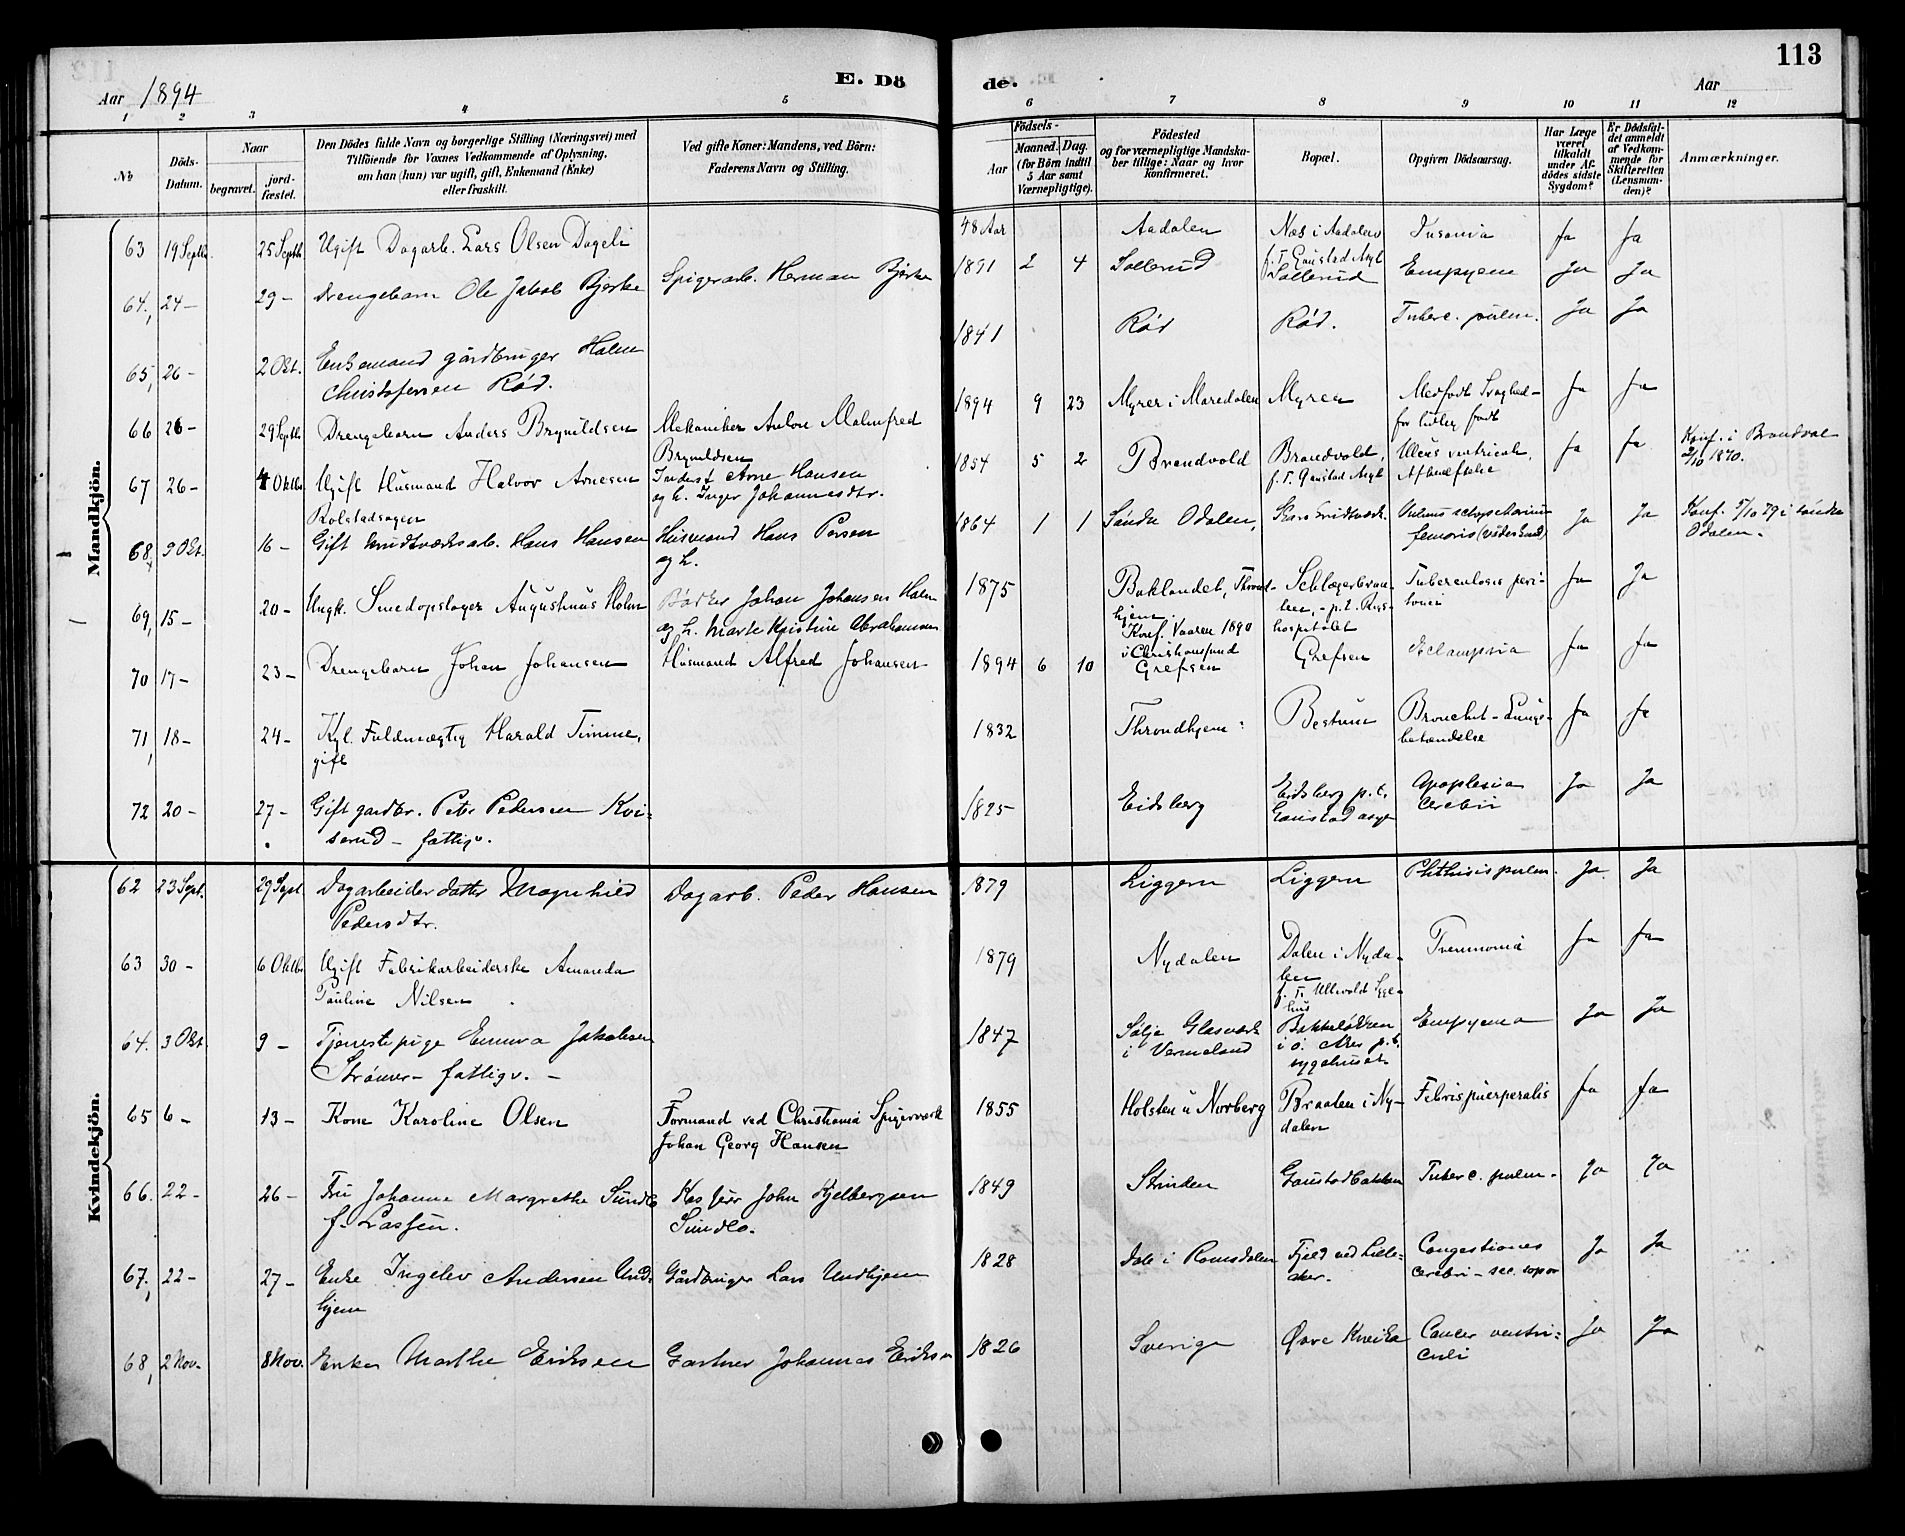 113
E. Döde.
Aar 1894
Aar
1 2 3 4 5 6 7 8 9 10 11 12
№
Döds-Datum.
Naar
begravet. jordfæstet.
Den Dödes fulde Navn og borgerlige Stilling (Næringsvei) med
Tilföiende for Voxnes Vedkommende af Oplysning,
om han (hun) var ugift, gift, Enkemand (Enke)
eller fraskilt.
Ved gifte Koner: Mandens, ved Börn:
Faderens Navn og Stilling.
Födsels-
Aar
Maaned. Dag.
(for Börn indtil
5 Aar samt
Værnepligtige).
Födested
og for værnepligtige Mandska-
ber tillige: Naar og hvor
konfirmeret.
Bopæl.
Opgiven Dödsaarsag.
Har Læge
været
tilkaldt
under Af-
dödes sidste
Sygdom?
Er Dödsfal-
det anmeldt
af Vedkom-
mende for
Skifteretten
(Lensman-
den)?
Anmærkninger.
Mandkjön.
63 19 Septbr. 25 Septb Ugift Dagarb. Lars Olsen Dageli 48 Aar Aadalen Næs i Aadalen f. T. Gaustad Asyl Insania Ja Ja
64, 24 – 29 – Drengebarn Ole Jakob Bjerke Spigerarb. Herman Bjerke 1891 2 4 Sollerud Sollerud Empyem Ja Ja
65, 26 – 2 Okt. Enkemand gårdbruger Halm
Christofersen Rød. 1841 Rød Rød. Tuberc. pulm. Ja Ja
66 26 – 29 Septb Drengebarn Anders Brynildsen Mekaniker Anton Malmfred
Brynildsen 1894 9 23 Myrer i Maredalen Myren Medfødt Svaghed –
for tidlig født Ja Ja
67 26 – 4 Oktbr Ugift Husmand Halvor Arnesen
Rolstadsagen Inderst Arne Hansen
og h. Inger Johannesdtr. 1854 5 2 Brandvold Brandvold,
f. T. Gaustad Asyl Ulcus ventriculi, Ja Ja Konf. i Brandval
2/10 1870.
68, 9 Okt. 16 – Gift krudtværksarb. Hans Hansen Husmand Hans Persen
og h. 1864 1 1 Søndre Odalen, femoris Ja Ja Konf. 5/10 79 i søndre
Odalen.
69, 15 – 20 – Ungk. Smedopslager Augustinus Holm Bødker Johan Johansen Holm
og h. Marte Kristine Abrahamsen 1875 Baklandet, Thrond-
hjem.
Konf. Vaaren 1890
i Christiansund Schlægerbrae-
ten, – p.t. Rigs-
hospitalet Tuberculosis peri-
tonei Ja Ja
70 17 – 23 – Drengebarn Johan Johansen Husmand Alfred Johansen 1894 6 10 Grefsen Grefsen Eclampsia Ja Ja
71, 18 – 24 – Kgl. Fuldmægtig Harald Timme,
gift 1832 Throndhjem: Bestum Bronchit – Lunge-
betændelse Ja Ja
72 20 – 27 – Gift gardbr. Peter Pedersen Kvi-
serud – fattigv. 1825 Eidsberg Eidsberg p.t.
Gaustad asyl Apoplexia
cerebri Ja Ja
Kvindekjön.
62 23 Sept. 29 Sept Dagarbeiderdatter Magnhild
Pedersdtr. Dagarb. Peder Hansen 1879 Liggern Liggern Phthisis pulm. Ja Ja
63 30 – 6 Oktbr Ugift Fabrikarbeiderske Amanda
Pauline Nilsen 1879 Nydalen Dalen i Nyda-
len
f. T. Ullevold Syge-
hus Ja Ja
64. 3 Okt. 9 – Tjenestepige Emma Jakobsen
Strømer – fattigv. – 1847 Sølje Glasværk
i Vermeland Bakkeløkken
i ø. Aker p.t.
sygehuset Empyema Ja Ja
65 6 – 13 – Kone Karoline Olsen Formand ved Christiania Spigerværk
Johan Georg Hansen 1855 Holsten u Norberg Braaten i Ny-
dalen Febris puerperalis Ja Ja
66. 22 – 26 – Fru Johanne Margrethe Sundbo
f. Lassen. Kasserer John Kjelbergsen
Sundbo. 1849 Strinden Gaustadbakken Tuberc. pulm. Ja Ja
67, 22 – 27 – Enke Ingelev Andersen Und-
hjem Gårdbruger Lars Undhjem 1828 Dale i Romsdalen Fjeld ved Lille-
aker. Congestiones
cerebri – sec. sopor Ja Ja
68, 2 Nov. 8 Nov. Enke Marthe Eriksen Gartner Johannes Eriksen 1826 Sverige Øvre Kveika Cancer ventri-
culi Ja Ja